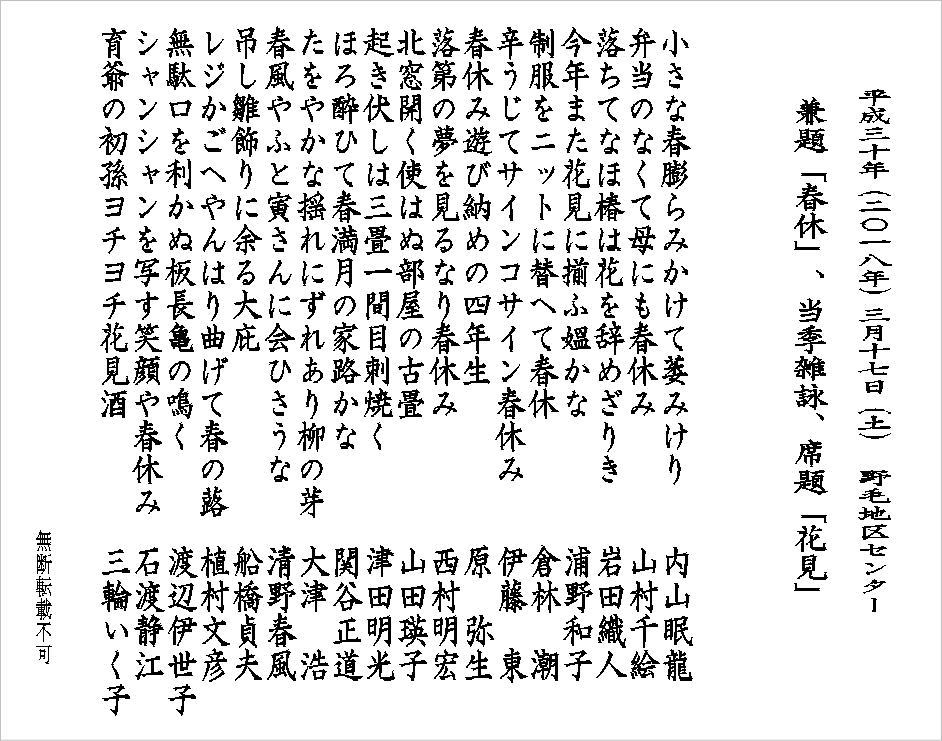 平成三十年(二〇一八年)三月十七日(土) 野毛地区センター
兼題「春休」、当季雑詠、席題「花見」
小さな春膨らみかけて萎みけり 内山眠龍
弁当のなくて母にも春休み 山村千絵
落ちてなほ椿は花を辞めざりき 岩田織人
今年また花見に揃ふ媼かな 浦野和子
制服をニットに替へて春休 倉林 潮
辛うじてサインコサイン春休み 伊藤 東
春休み遊び納めの四年生 原 弥生
落第の夢を見るなり春休み 西村明宏
北窓開く使はぬ部屋の古畳 山田瑛子
起き伏しは三畳一間目刺焼く 津田明光
ほろ酔ひて春満月の家路かな 関谷正道
たをやかな揺れにずれあり柳の芽 大津 浩
春風やふと寅さんに会ひさうな 清野春風
吊し雛飾りに余る大庇 船橋貞夫
レジかごへやんはり曲げて春の蕗 植村文彦
無駄口を利かぬ板長亀の鳴く 渡辺伊世子
シャンシャンを写す笑顔や春休み 石渡静江
育爺の初孫ヨチヨチ花見酒 三輪いく子
無断転載不可